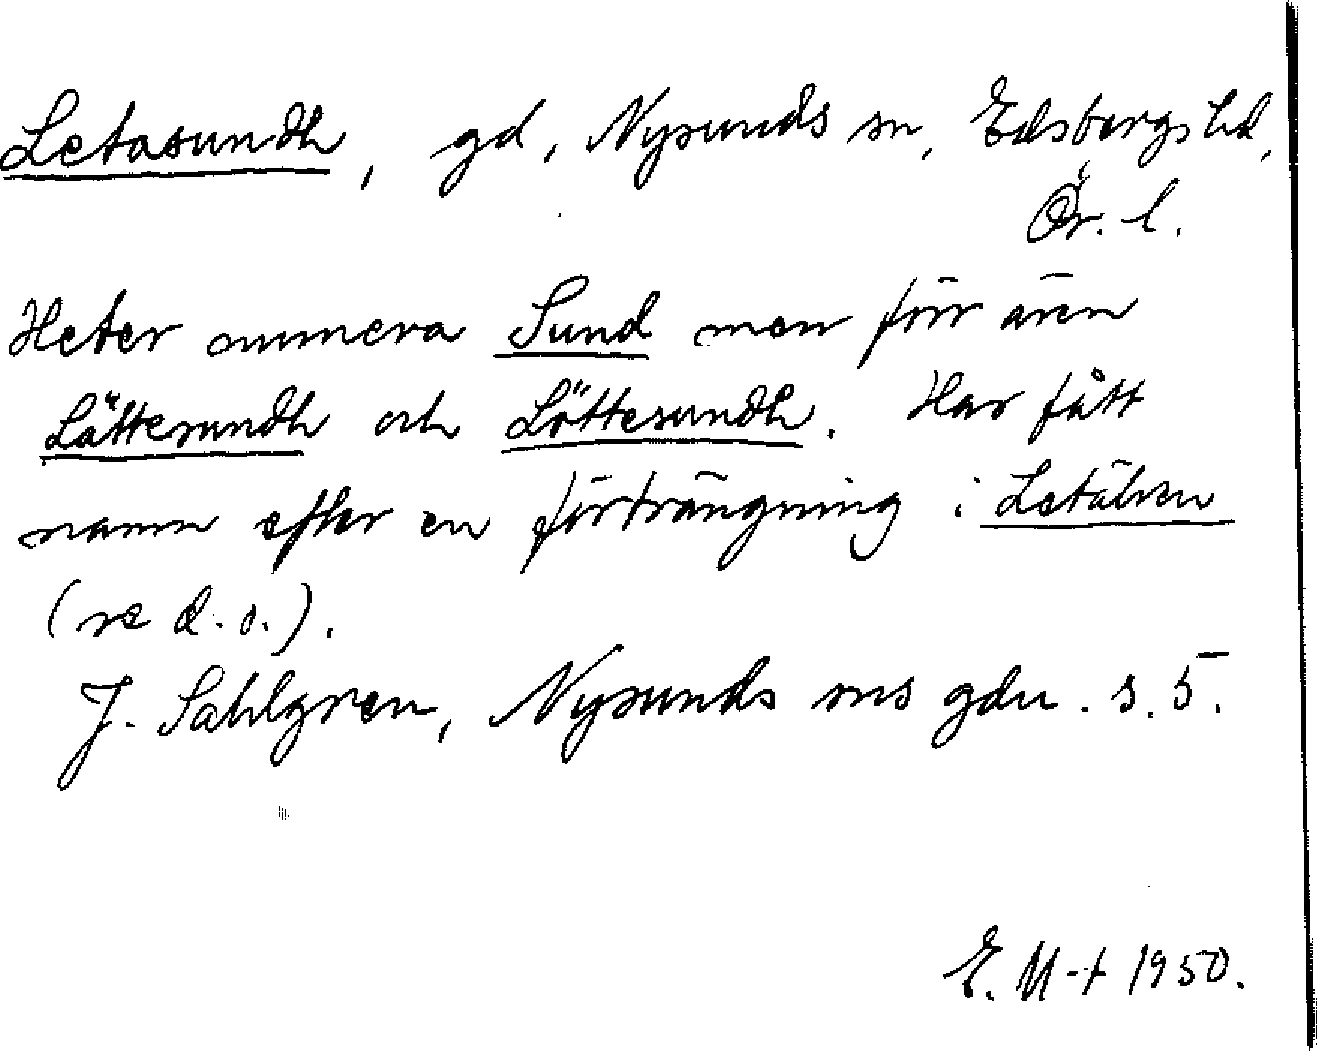 Letasundh, gd, Nysunds sn, Edsbergs hd,
Ör. l.
Heter numera Sund men förr även
Lättesundh och Löttesundh. Har fått
namn efter en förträngning i Letälven
(se d. o.).
J. Sahlgren, Nysunds sns gdn. s. 5.
E. M-t 1950.